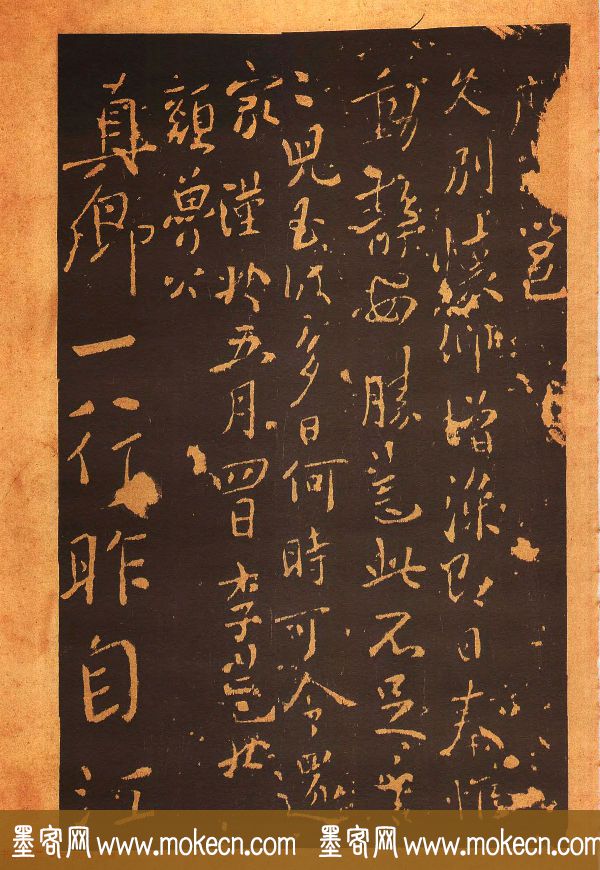 邕
久別上懷仰增深即日奉惟
動靜安勝邕此不足言
二兒至彼多日何時可令還
家謹於五月四日李邕狀
顏魯公
真卿一行昨自江
墨客网 www.mokecn.com 墨客网 www.mokecn.com